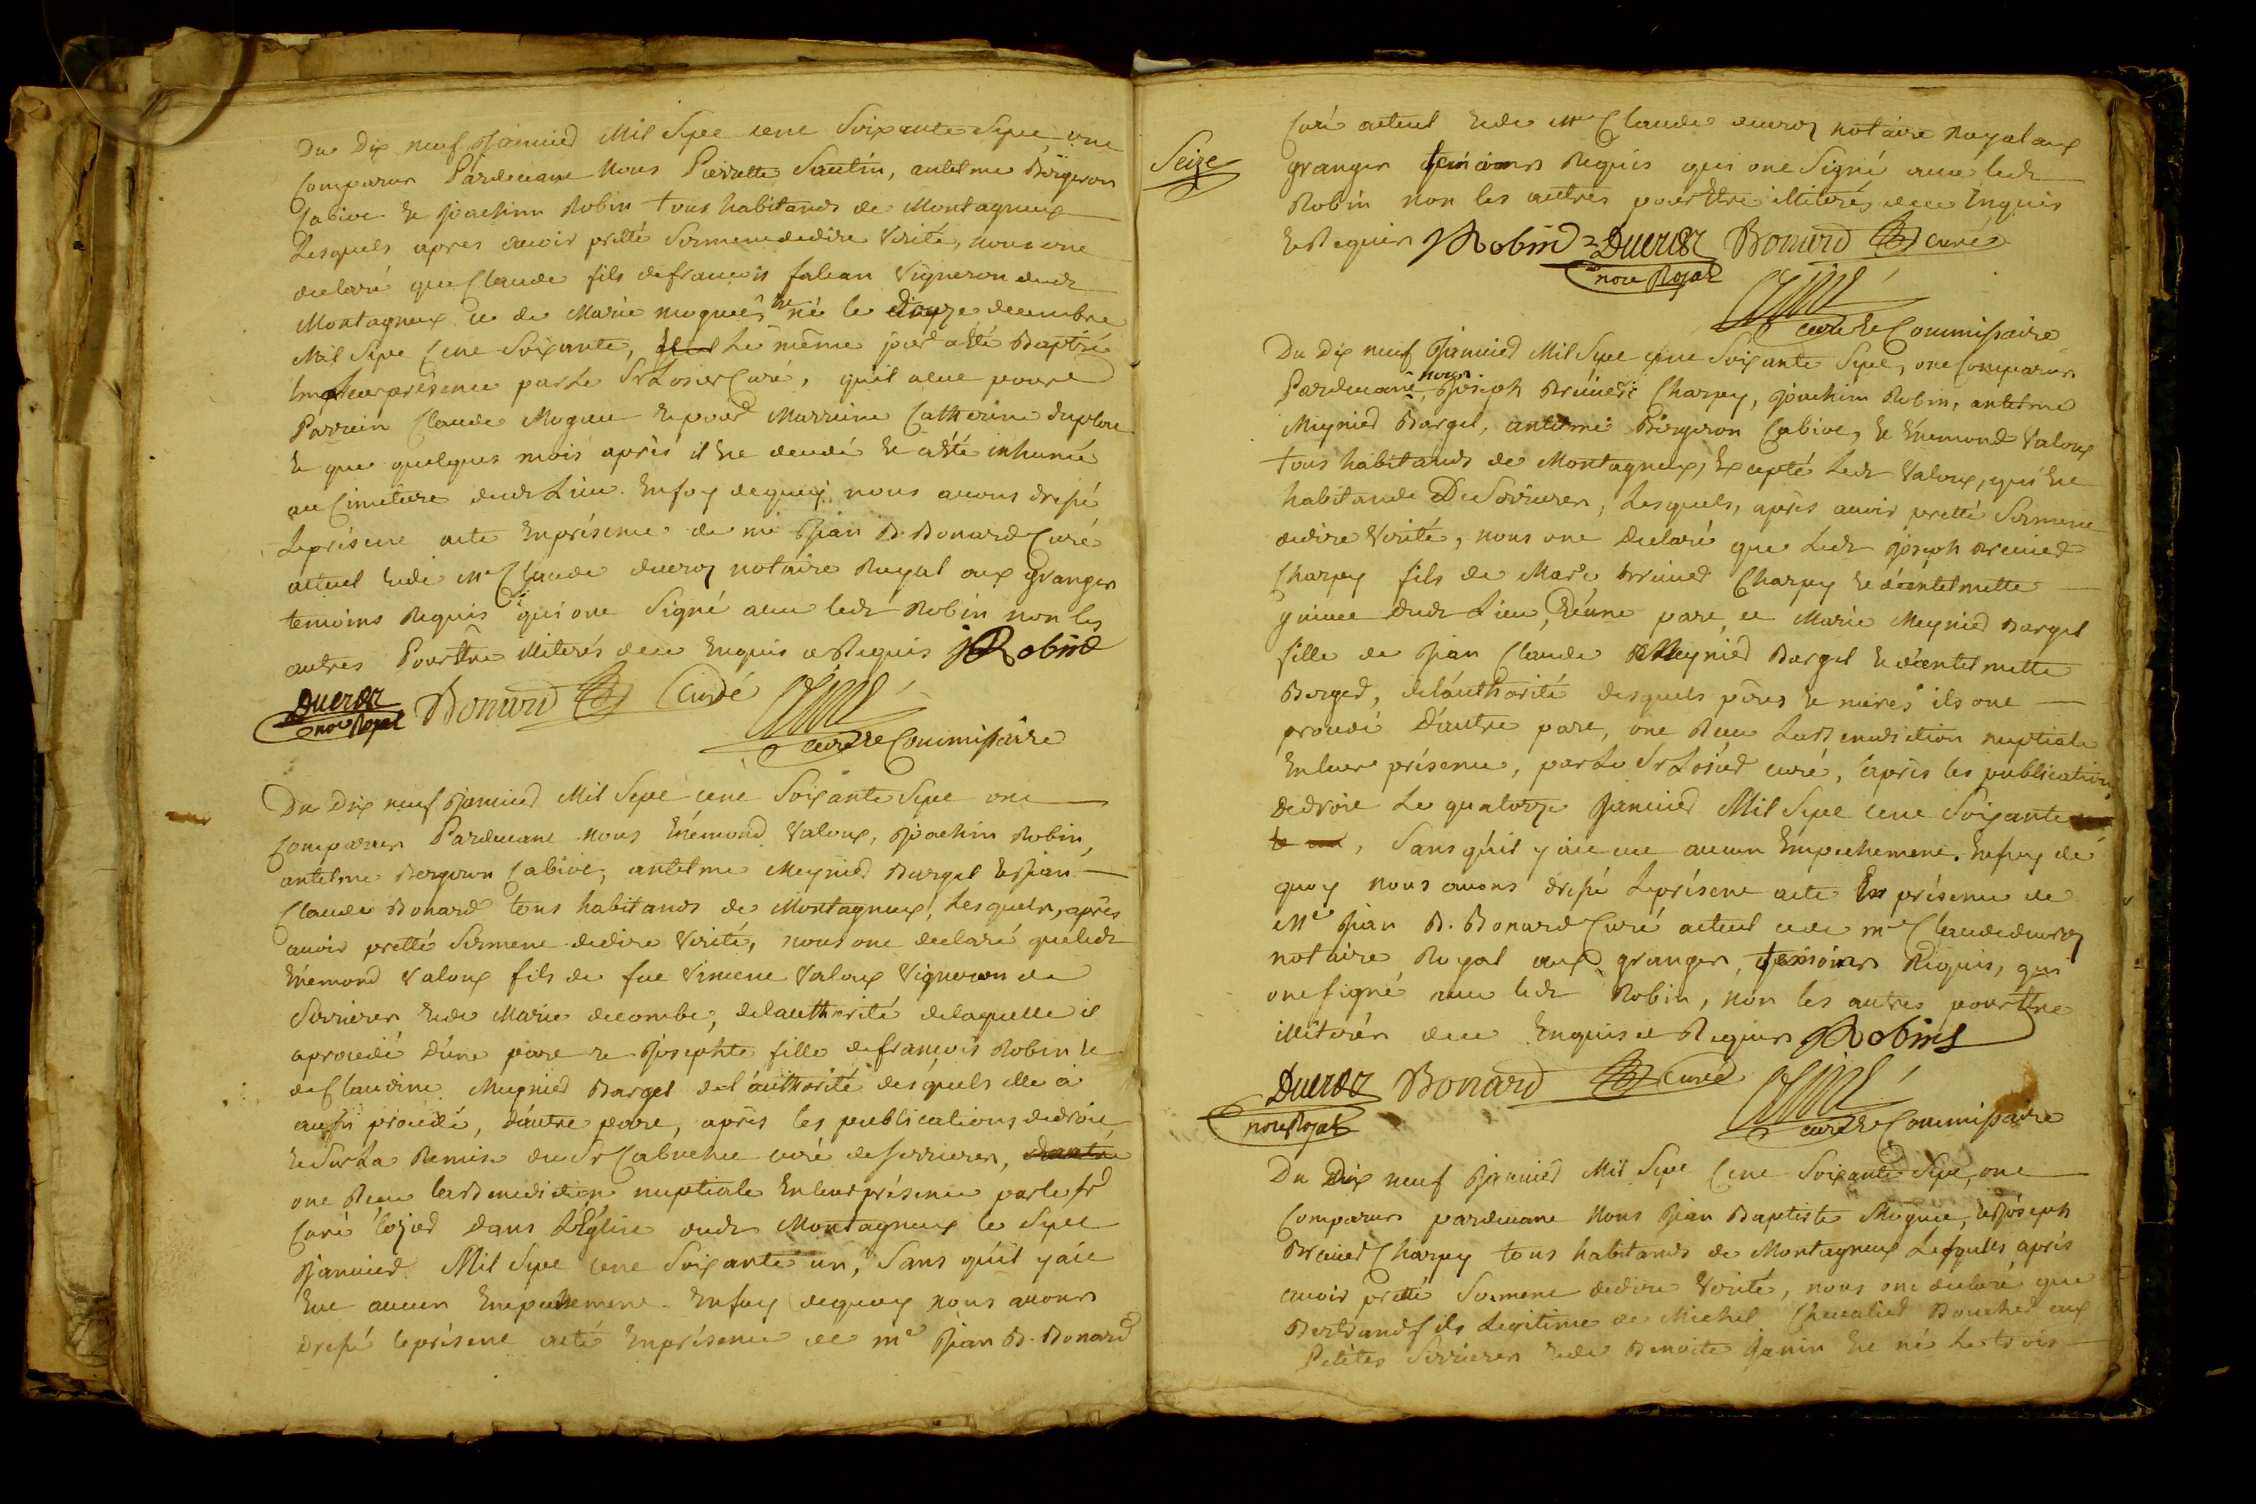 Du Dix neuf Janvier Mil Sept cent Soixante Sept, ont
Comparus Pardevant Nous Pierrette Santin, antelme Bergeron
Cabive et Joachim Robin tous habitands de Montagneux
Lesquels apres avoir pretté Serment de dire Verité, nous ont
declaré que Claude fils de francois falcan Vigneron dudt
Montagneux et de Marie moguet est né le douze decembre
Mil Sept Cent Soixante, Le même jour a été Baptisé
En Leur présence par Le Sr Losier Curé, qu'il a eut pour
Parrein Claude Moguet et pour Marreine Catherine
Et que quelques mois après il est decedé et a été inhumé
au Cimetiere dudt Lieu. En foy de quoy nous avons dressé
Le présent acte En présence de me Jean B. Bonard Curé
actuel et de me Claude ducroz notaire Royal aux granges
temoins Requis qui ont Signé avec ledt Robin non les
autres Pour Etre illiterés de ce Enquis et Requis JRobin
Ducroz Bonard Curé
nore Royal
curé et Commissaire
Du Dix neuf Janvier Mil Sept cent Soixante Sept ont
Comparus Pardevant nous Enémond Valoux, Joachim Robin,
antelme Bergeron Cabive, antelme Meynier Bargel et Jean
Claude Bonard tous habitands de Montagneux, Lesquels, après
avoir pretté Serment de dire Verité, nous ont declaré que ledt
Enémond Valoux fils de feu Vincent Valoux Vigneron de
Serrieres et de Marie decombe, de l'authorité de laquelle il
a procedé d'une part et Josephte fille de francois Robin et
de Claudine Mugnier Bargel de l'authorité desquels elle a
aussi procedé, d'autre part, après les publications de droit
et Sur La Remise du Sr Cabuchet curé de Serrieres,
ont Reçu la Benediction nuptiale En leur présence par le Sr
Curé Losier dans L'Eglise dudt Montagneux le Sept
Janvier Mil Sept cent Soixante un, Sans qu'il y ait
Eut aucun Empechement. En foy de quoy nous avons
dressé le présent acte En présence de me Jean B. Bonard
Seize
Curé actuel et de me Claude ducroz notaire Royal aux
granges temoins Requis qui ont Signé avec ledt
Robin non les autres pour Etre illiterés de ce Enquis
et Requis JRobin Ducroz Bonard curé
nore Royal
curé et Commissaire
Du Dix neuf Janvier Mil Sept cent Soixante Sept, ont Comparus
Pardevant nous, Joseph Brunier Charpy, Joachim Robin, antelme
Meynier Bargel, antelme Bergeron Cabive, et Enemond Valoux
tous habitands de Montagneux, Excepté Ledt Valoux, qui est
habitand De Serrieres, Lesquels, après avoir pretté Serment
de dire Verité, nous ont Declaré que Ledt Joseph Brunier
Charpey fils de Marc Brunier Charpey et d'antelmette
dudt Lieu, d'une part, et Marie Meynier Bargel
fille de Jean Claude Meynier Bargel et d'antelmette
Berger, de l'authorité desquels pères et mères ils ont
procedé D'autre part, ont Reçu La Benediction nuptiale
En leur présence, par Le Sr Losier curé, après les publications
de droit Le quatorze Janvier Mil Sept cent Soixante
, Sans qu'il y ait eut aucun Empechement. En foy de
quoy nous avons dressé Le présent acte En présence de
Me Jean B. Bonard Curé actuel et de me Claude ducroz
notaire Royal aux granges, temoins Requis, qui
ont signé avec ledt Robin, non les autres pour Etre
illiterés de ce Enquis et Requis JRobin
Ducroz Bonard curé
nore Royal
curé et Commissaire
Du Dix neuf Janvier Mil Sept Cent Soixante Sept, ont
Comparus pardevant Nous Jean Baptiste Moguet, et Joseph
Brunier Charpey tous habitands de Montagneux Lesquels après
avoir pretté Serment de dire Verité, nous ont declaré que
Bertrand fils Legitime de Michel Chevalier Boucher aux
Petites Serrieres et de Benoite Janin est né Le trois